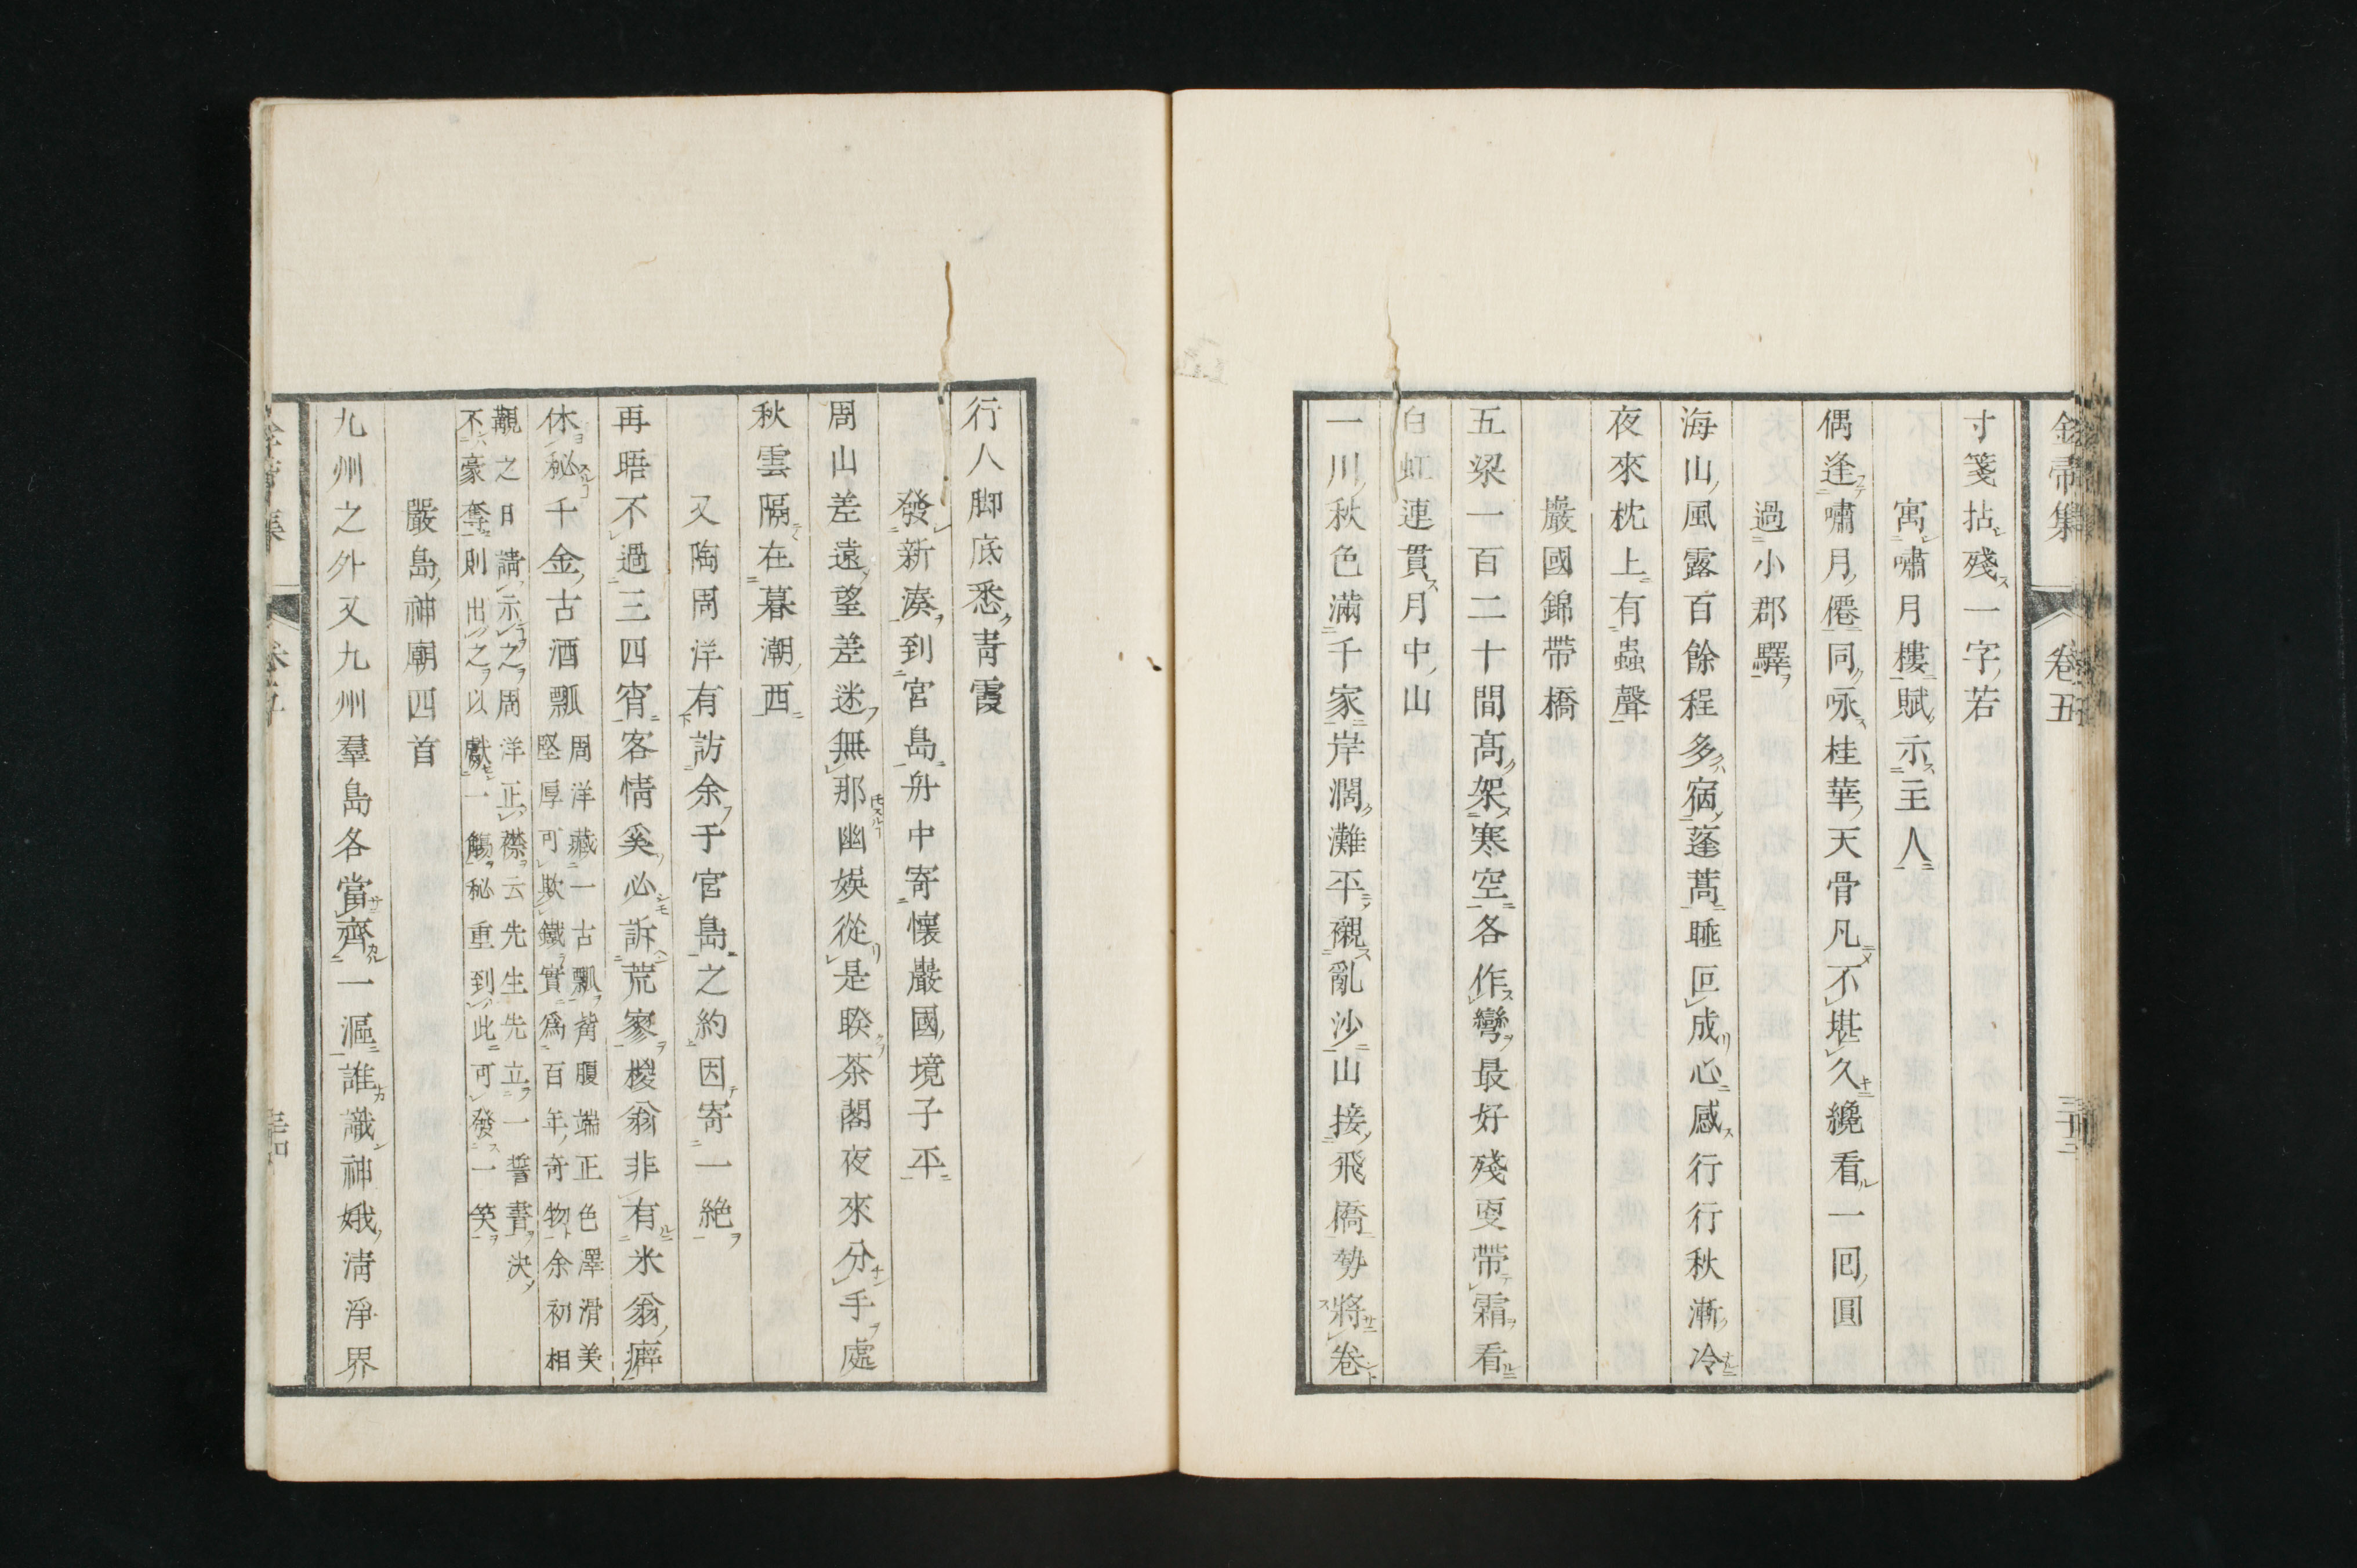 金帚集 卷五
寸箋拈殘一字若
寓嘯月樓賦示主人
偶逢嘯月僊同咏桂華天骨凡不堪久纔看一回圓
過小郡驛
海山風露百餘程多宿蓬蒿睡叵成心感行行秋漸冷
夜來枕上有蟲聲
巖國錦帶橋
五梁一百二十間高架寒空各作彎最好殘更帶霜看
白虹連貫月中山
一川秋色滿千家岸濶灘平襯亂沙山接飛橋勢將卷
行人脚底悉青霞
發新湊到宮島舟中寄懷巖國境子平
周山差遠望差迷無那幽娛從是睽茶閣夜來分手處
秋雲隔在暮潮西
又陶周洋有訪余于宮島之約因寄一絶
再晤不過三四宵客情奚必訴荒寥椶翁非有米翁癖
休秘千金古酒瓢
周洋藏一古瓢觜腹端正色澤滑美
堅厚可欺鐵實爲百年奇物余初相
覯之日請示之周洋正襟云先生先立一誓書決
不豪奪則出之以獻一觴秘重到此可發一笑
嚴島神廟四首
九州之外又九州羣島各當齊一漚誰識神娥淸淨界